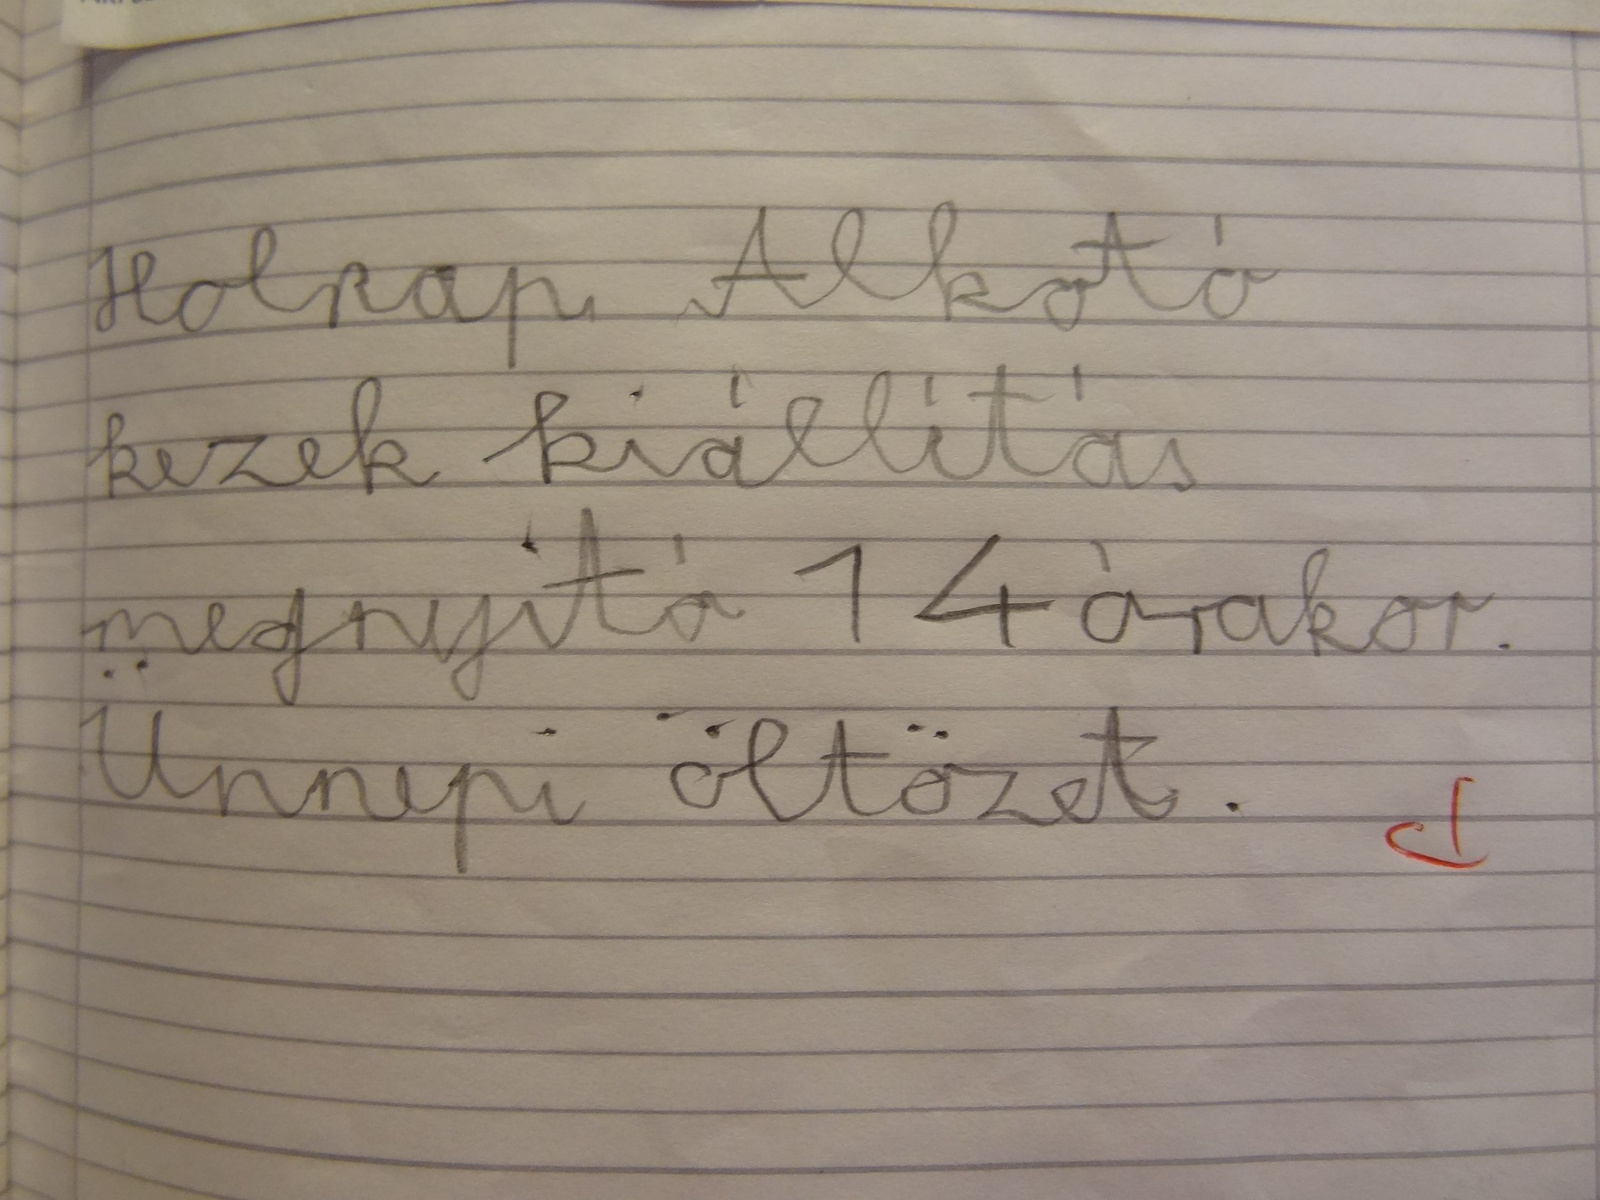 Holnap Alkotó
kezek kiállítás
megnyitó 14 órakor.
Ünnepi öltözet.